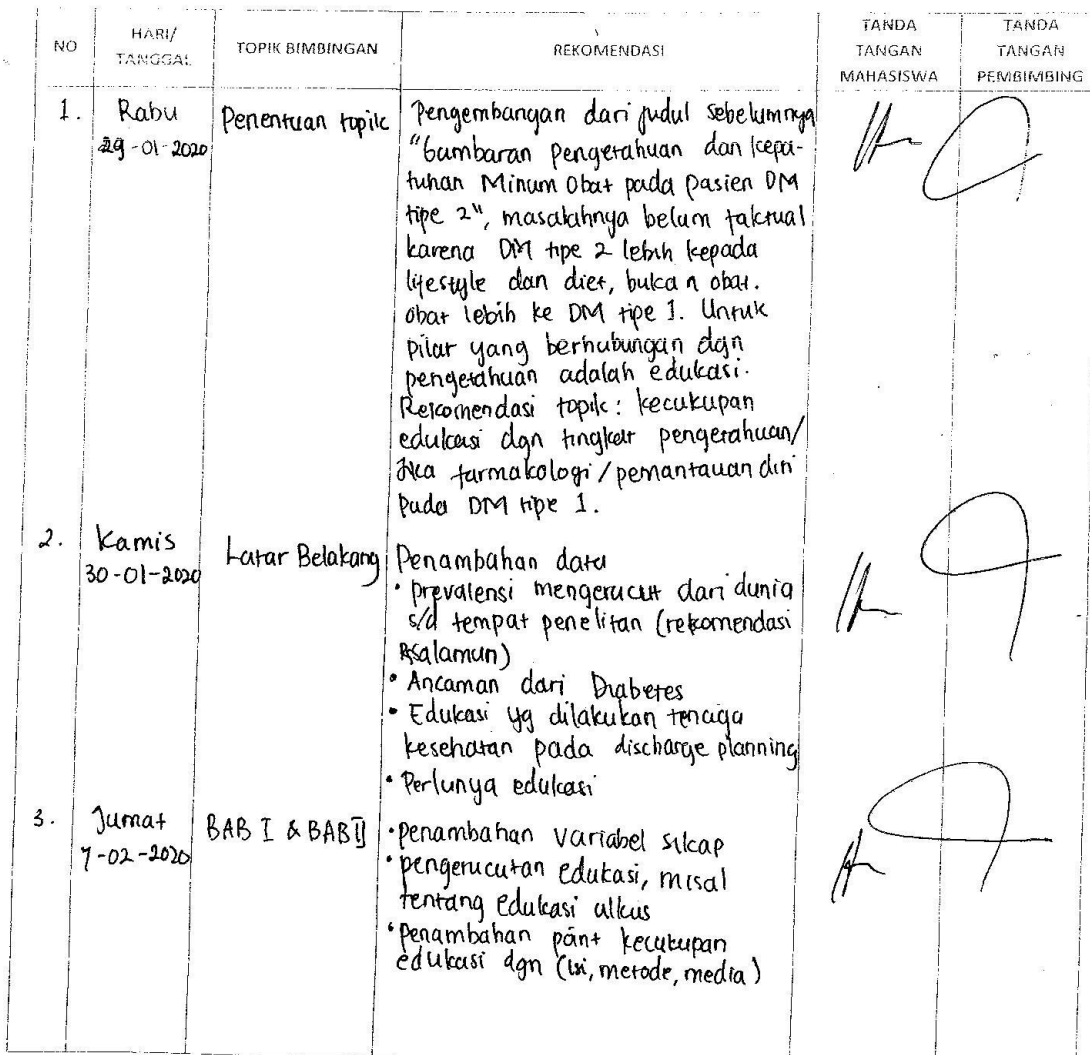 NO
HARI/
TANGGAL
TOPIK BIMBINGAN
REKOMENDASI
TANDA
TANGAN
MAHASISWA
TANDA
TANGAN
PEMBIMBING
1.
Rabu
29-01-2020
Penentuan topik
Pengembangan dari judul sebelumnya
"Gambaran pengetahuan dan kepa-
tuhan Minum Obat pada pasien DM
tipe 2", masalahnya belum faktual
karena DM tipe 2 lebih kepada
lifestyle dan diet, bukan obat.
obat lebih ke DM tipe 1. Untuk
pilar yang berhubungan dgn
pengetahuan adalah edukasi.
Rekomendasi topik: kecukupan
edukasi dgn tingkat pengetahuan/
farmakologi/pemantauan diri
Pada DM tipe 1.
2.
Kamis
30-01-2020
Latar Belakang
Penambahan data
• prevalensi mengerucut dari dunia
s/d tempat penelitan (rekomendasi
Rsalamun)
• Ancaman dari Diabetes
• Edukasi yg dilakukan tenaga
kesehatan pada discharge planning
• Perlunya edukasi
3.
Jumat
7-02-2020
BAB I & BAB II
• penambahan variabel sikap
• pengerucutan edukasi, misal
tentang edukasi ulkus
• penambahan point kecukupan
edukasi dgn (isi, metode, media)